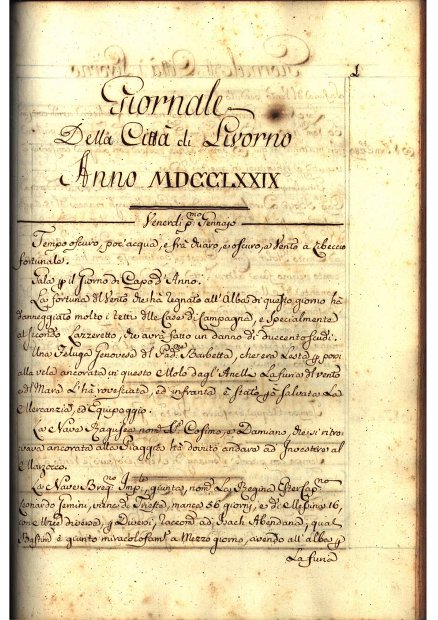 1
Giornale
Della Città di Livorno
Anno MDCCLXXIX
Venerdi p.mo Gennajo
Tempo oscuro, poc'acqua, e frà chiaro, e oscuro, e Vento a Libeccio
fortunale.
Gala p il Giorno di Capo d'Anno.
La fortuna di Vento che hà regnato all'Alba di questo giorno hà
danneggiato molto i tetti delle Case di Campagna, e specialmente
al secondo Lazzeretto, che avrà fatto un danno di duecento scudi.
Una Feluga Genovese di Barbetta, che era lesta p
alla vela ancorata in questo Molo dagl'Anelli La furia di vento
e di Mare L'hà rovesciata, ed infranta è stata già salvata La
Mercanzia, ed Equipaggio.
La Nave Ragusea nom.ta S. Cosimo, e Damiano, che si ritro
vava ancorata alla Piaggia hà dovuto andare ad Investire al
Marzocco.
La Nave Imp.le giunta, nom.ta La Regina Ester Cap.no
Leonardo Semini, viene di Trieste, manca 56 giorni, e di Messina 16,
con diverse, p Diversi, raccom.ta ad Isach Abendana, qual
è giunto miracolosam.te a Mezzo giorno, avendo all'alba p
La furia